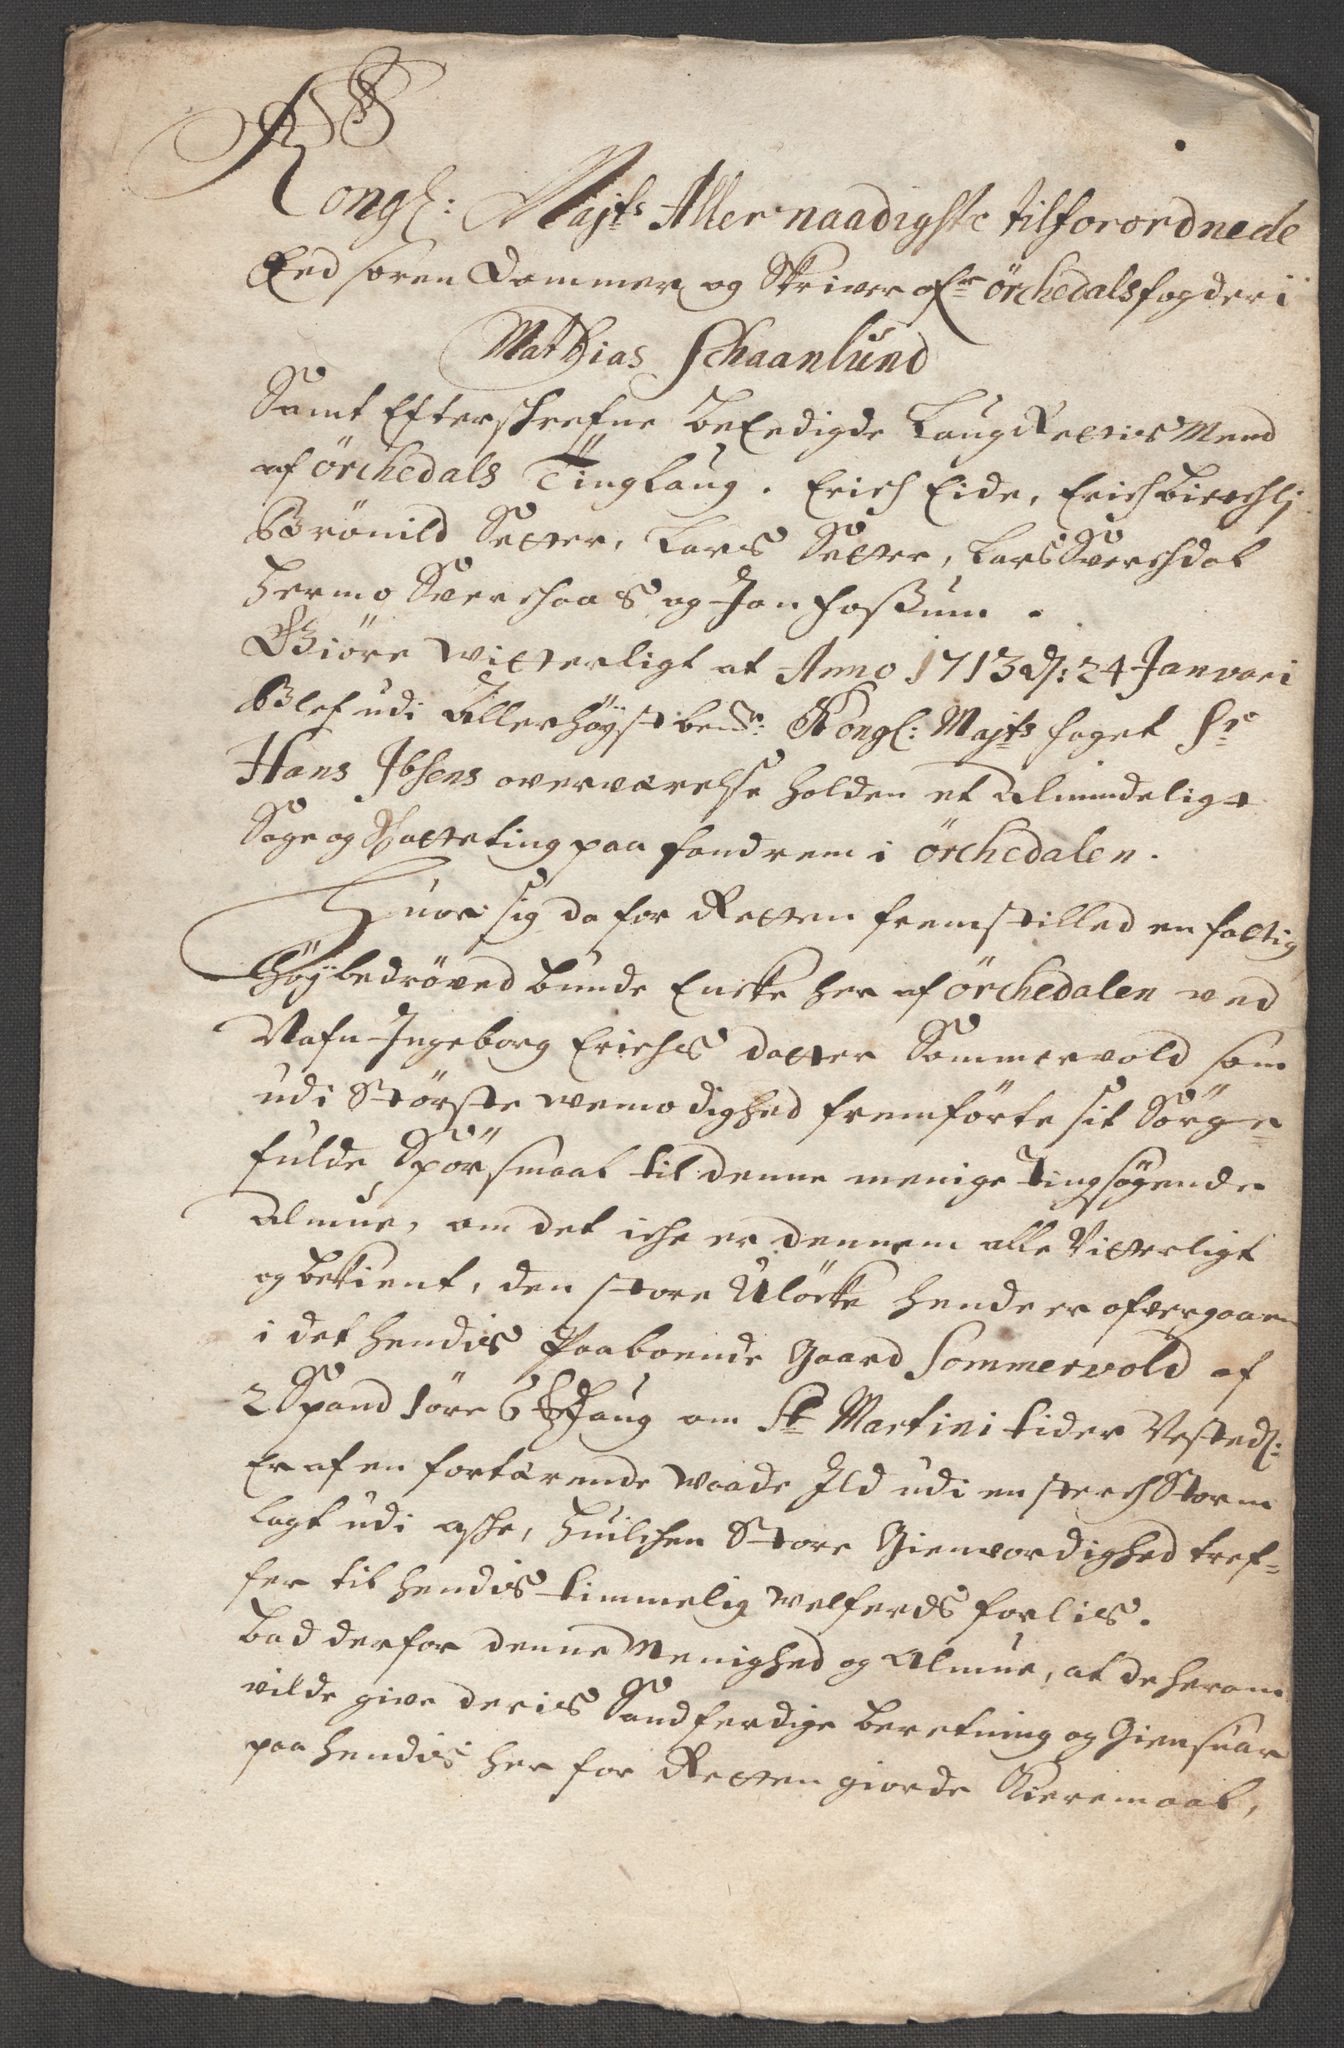 Kongl: Mayts Aller naadigste tilforordnede
Eed soren Dommer og Skriver ofr Örchedals fogderi
Mathias Schaanlund
Samt Efterschrefne beEedigde LaugRettis Mend
af Örchedals Tinglaug. Erich Eide, Erich Birchlj
Brönild Setter, Lars Setter, Lars Sverchdal
Hermo Sverchaas og Jon Foßum.
Giöre witterligt at Anno 1713 d: 24 Janvari
Blef udi Allerhöystbente: Kongl: Mayts foget Sr
Hans Ibsens overværelse holden et Almindeligt
Sage og Skatteting paa Fandrem i Örchedalen.
Huor sig da for Retten fremstilled en fattig
Höybedröved bunde Encke her af Örchedalen ved
Nafn Ingeborg Erichs datter Sommervold som
udi Störste wemodighed fremförte sit Sörge=
fulde Spörsmaal til denne menige Tingsögende
Almue, om det iche er dennem alle Vitterligt
og bekient, den store Ulöcke hende er ofvergaaen
i det hendis Paaboende Gaard Sommervold af
2 Spand 1 öre 6 Mklaug om St Martini tider Vestedl:
Er af en fortærende Waade Ild udi en sterch Storm
lagt udi asche, Huilchen Store Gienvordighed tref=
fer til hendis timmelig Welferds forlis.
bad derfor denne Menighed og Almue, at de herom
vilde give deris Sandferdige beretning og Giensuar
paa hendis her for Retten giorde Kieremaal,